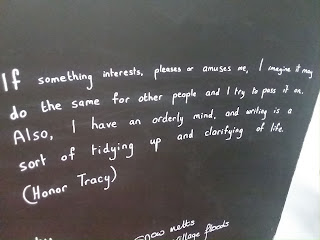 If something interests, pleases or amuses me, I imagine it may
do the same for other people and I try to pass it on.
Also, I have an orderly mind, and writing is a
sort of tidying up and clarifying of life.
(Honor Tracy)
snow melts
village floods